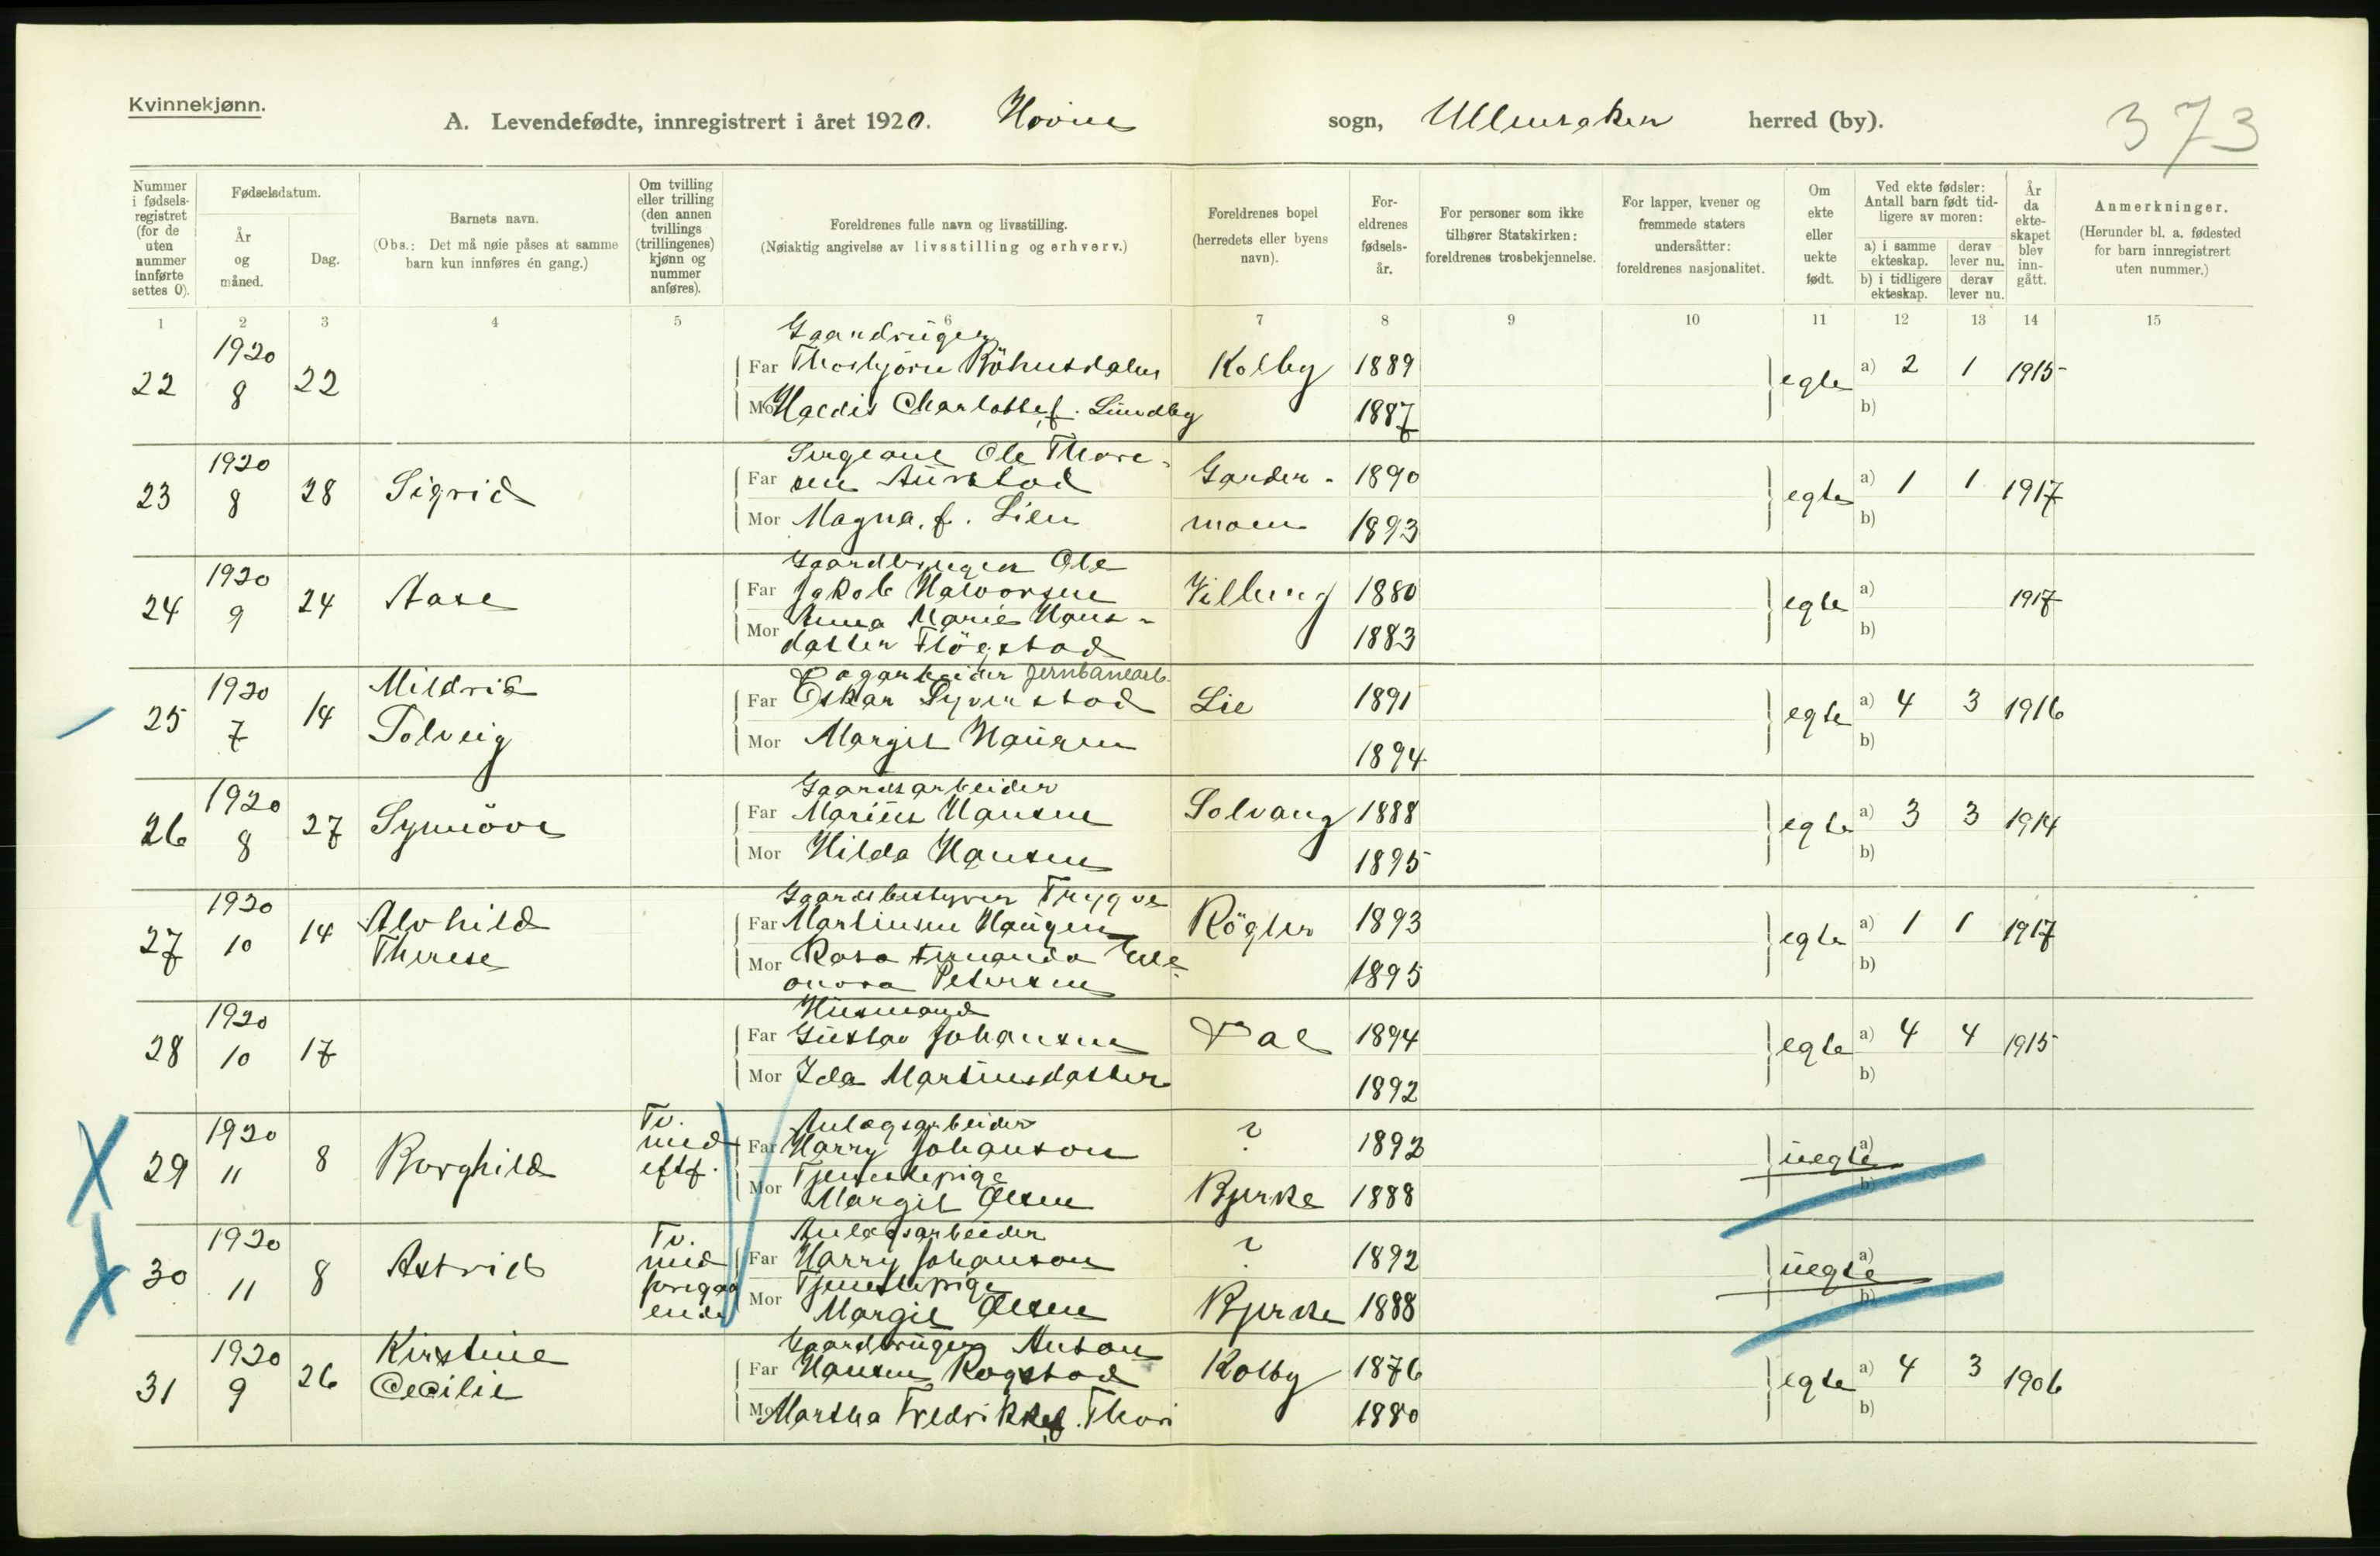 Kvinnekjønn.
A. Levendefødte, innregistrert i året 1920. Hovin sogn, Ullensaker herred (by).
373
Nummer i fødsels-registret (for de uten nummer innførte settes 0).
Fødselsdatum.
År og måned.
Dag.
Barnets navn.
(Obs.: Det må nøie påses at samme barn kun innføres én gang.)
Om tvilling eller trilling (den annen tvillings (trillingenes) kjønn og nummer anføres).
Foreldrenes fulle navn og livsstilling.
(Nøiaktig angivelse av livsstilling og erhverv.)
Foreldrenes bopel (herredets eller byens navn).
For-eldrenes fødsels-år.
For personer som ikke tilhører Statskirken: foreldrenes trosbekjennelse.
For lapper, kvener og fremmede staters undersåtter: foreldrenes nasjonalitet.
Om ekte eller uekte født.
Ved ekte fødsler: Antall barn født tid-ligere av moren:
a) i samme ekteskap. derav lever nu.
b) i tidligere ekteskap. derav lever nu.
År da ekte-skapet blev inn-gått.
Anmerkninger.
(Herunder bl. a. fødested for barn innregistrert uten nummer.)
1 2 3 4 5 6 7 8 9 10 11 12 13 14 15
Gaardbruger
22 1920 8 22 Far Thorbjörn Kolby 1889 egte a) 2 1 1915
Mor Charlotte, f. Lundby 1887 b)
Sergeant Ole Thore-
23 1920 8 28 Sigrid Far sen Aurstad Garder- 1890 egte a) 1 1 1917
Mor Magna, f. Lien moen 1893 b)
Gaardbruger Ole
24 1920 9 24 Aase Far Jakob Halvorsen Vilberg 1880 egte a) 1917
Mor Anna Marie Hans-
datter Flögstad 1883 b)
Dagarbeider jernbanearb.
25 1920 7 14 Mildrid Solveig Far Oskar Syverstad Lie 1891 egte a) 4 3 1916
Mor Margit Haugen 1894 b)
Gaardsarbeider
26 1920 8 27 Synnöve Far Marius Hansen Solvang 1888 egte a) 3 3 1914
Mor Hilda Hansen 1895 b)
Gaardsbestyrer Trygve
27 1920 10 14 Alvhild Therese Far Martinsen Haugen Rögler 1893 egte a) 1 1 1917
Mor Rosa Fernanda Ele-
onora Petersen 1895 b)
Husmand
28 1920 10 17 Far Gustav Johansen Dal 1894 egte a) 4 4 1915
Mor Ida Martinsdatter 1892 b)
Anlægsarbeider
29 1920 11 8 Borghild Tv. med eftf. Far Harry Johanson ? 1892 uegte a)
Tjenestepige
Mor Margit Olsen Bjerke 1888 b)
Anlægsarbeider
30 1920 11 8 Astrid Tv. med foregaaende Far Harry Johanson ? 1892 uegte a)
Tjenestepige
Mor Margit Olsen Bjerke 1888 b)
Gaardbruger Anton
31 1920 9 26 Kirstine Cecilie Far Hansen Rogstad Kolby 1876 egte a) 4 3 1906
Mor Martha Fredrikke, f. Thori 1880 b)